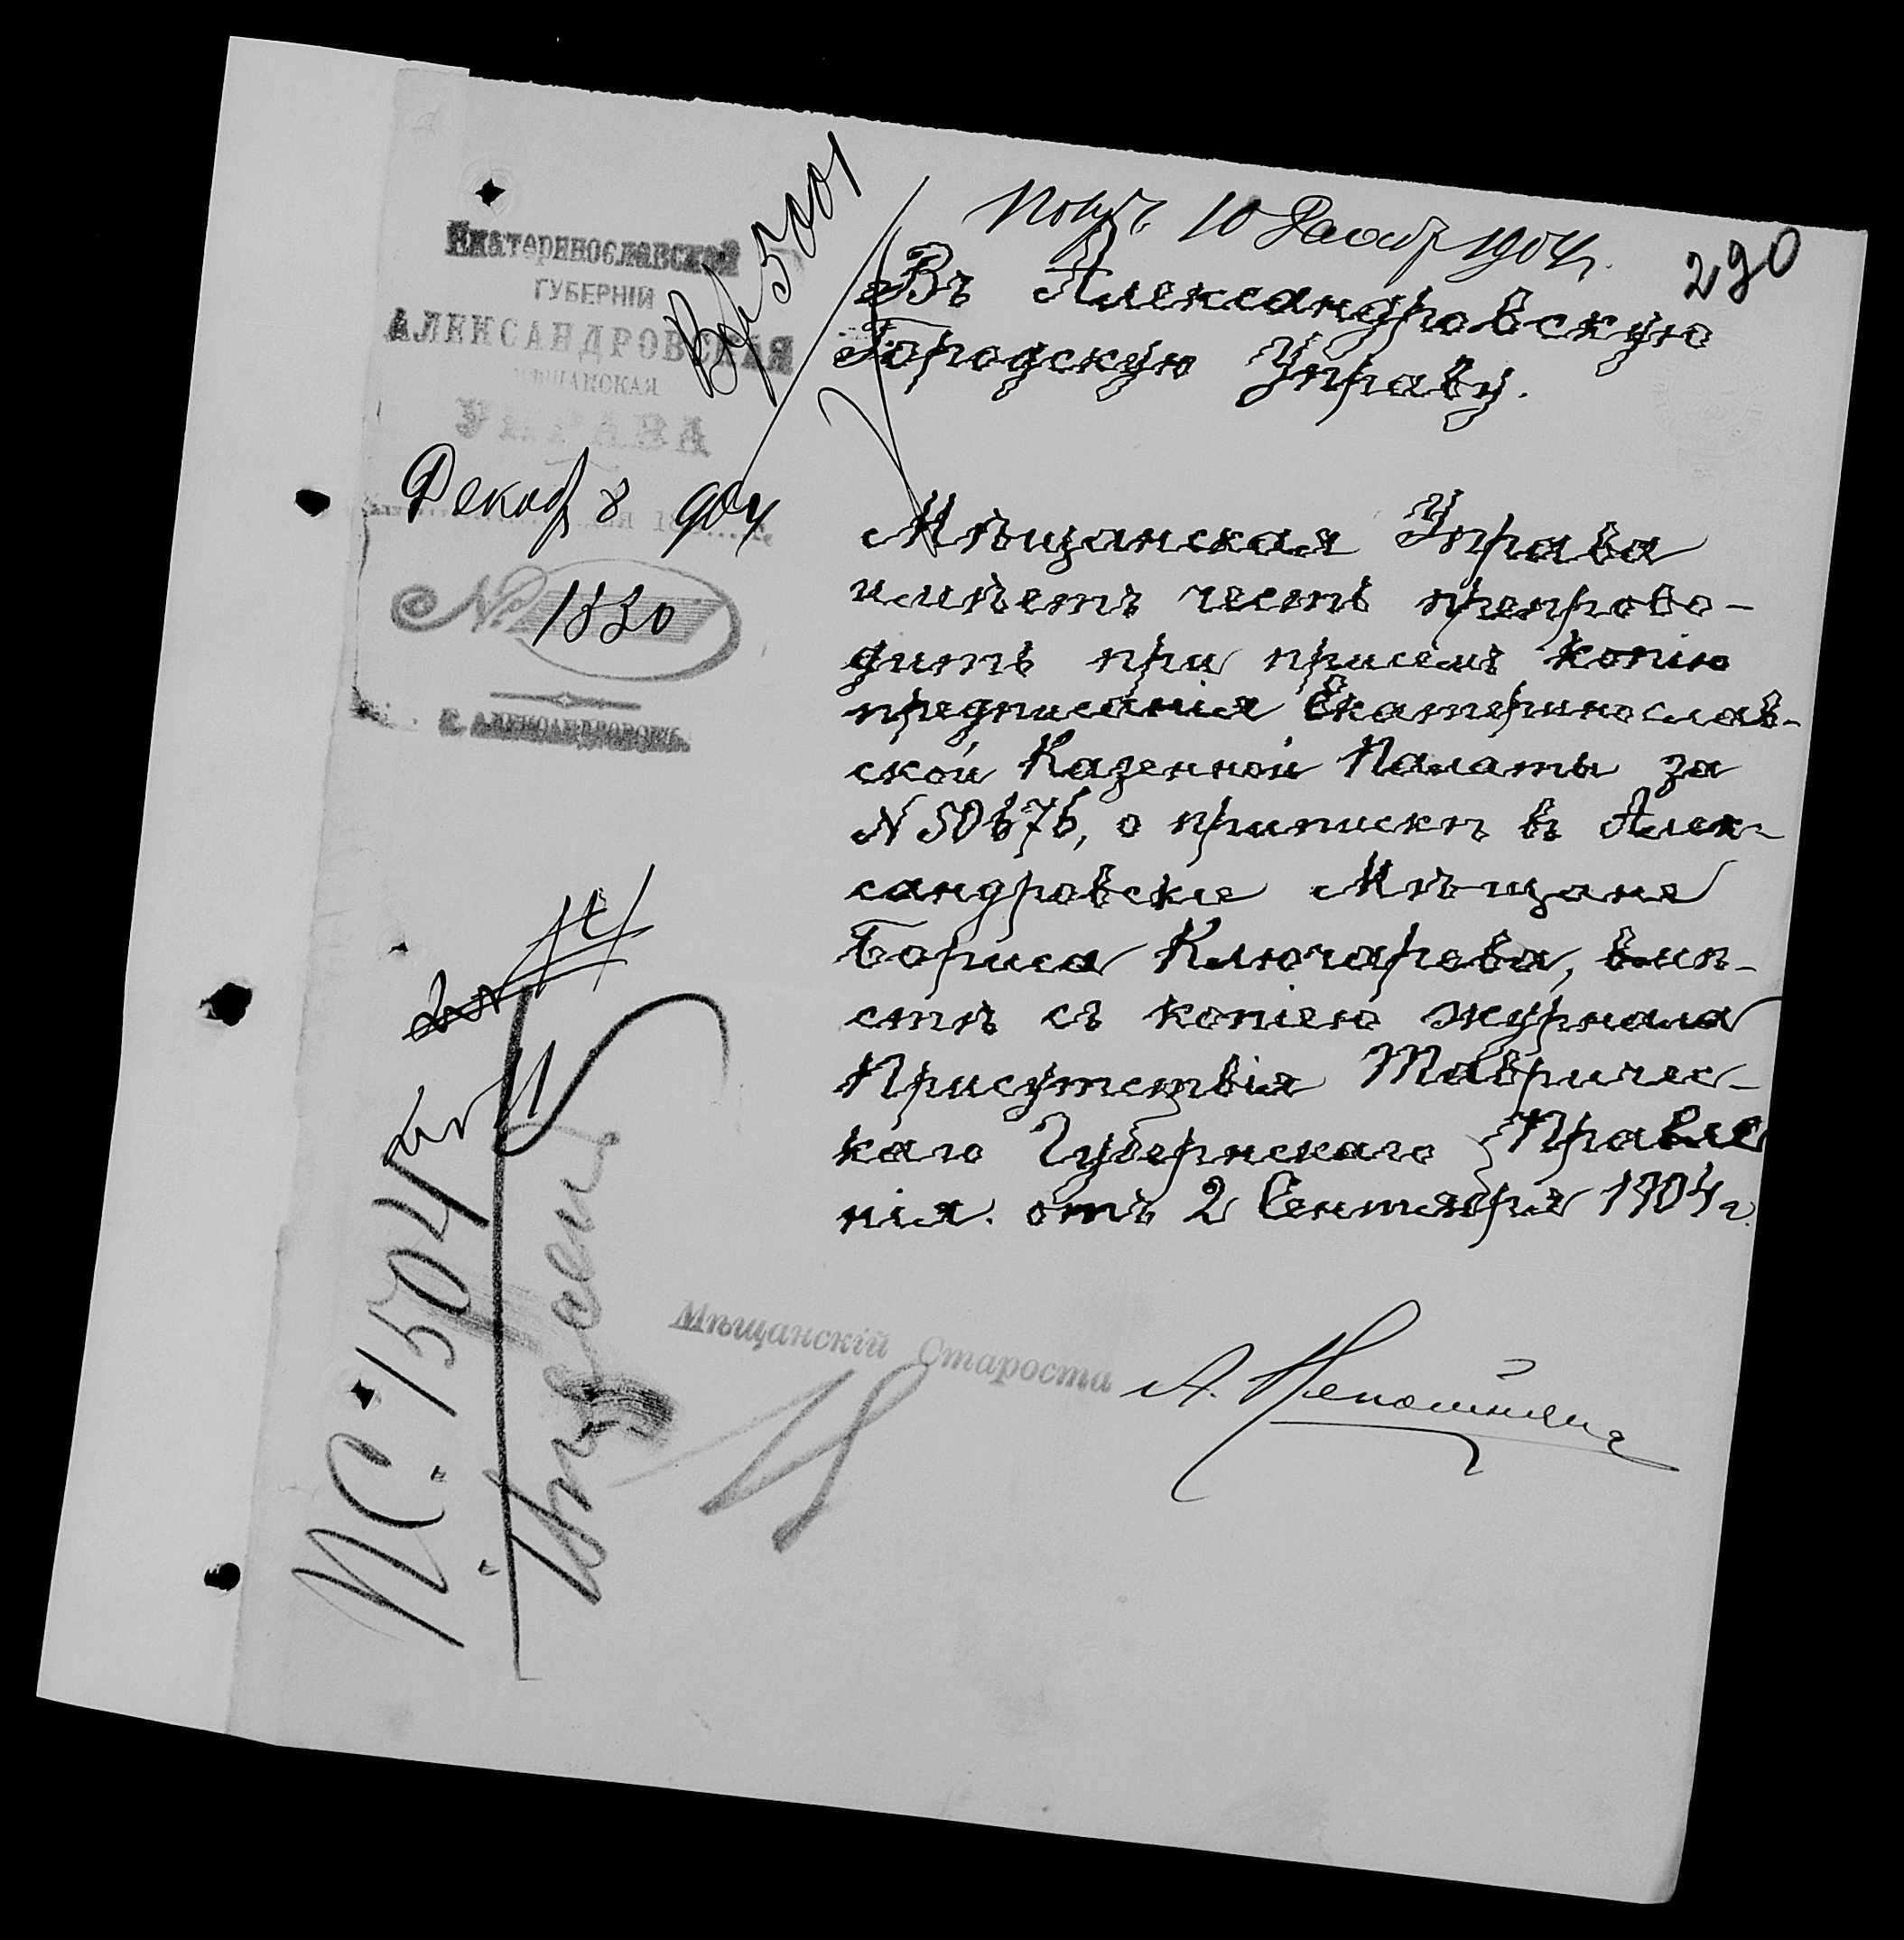 Екатеринославской
ГУБЕРНІЙ
АЛЕКСАНДРОВСКАЯ
МѢЩАНСКАЯ
УПРАВА
Декаб 8 904
№ 1330
Г. АЛЕКСАНДРОВСКЪ.
Вх 5001
Получ. 10 Декаб 1904 г.
290
Въ Александровскую
Городскую Управу.
Мѣщанская Управа
имѣетъ честь препрово-
дить при присемъ копію
предписанія Екатеринослав-
ской Казенной Палаты за
N 50676, о припискѣ въ Алек-
сандровскіе Мѣщане
Бориса Ключарева, вмѣ-
стѣ съ копіею журнала
Присутствія Тавричес-
каго Губернскаго Правле
нія. отъ 2 Сентября 1904 г.
Мѣщанскій Староста
1504